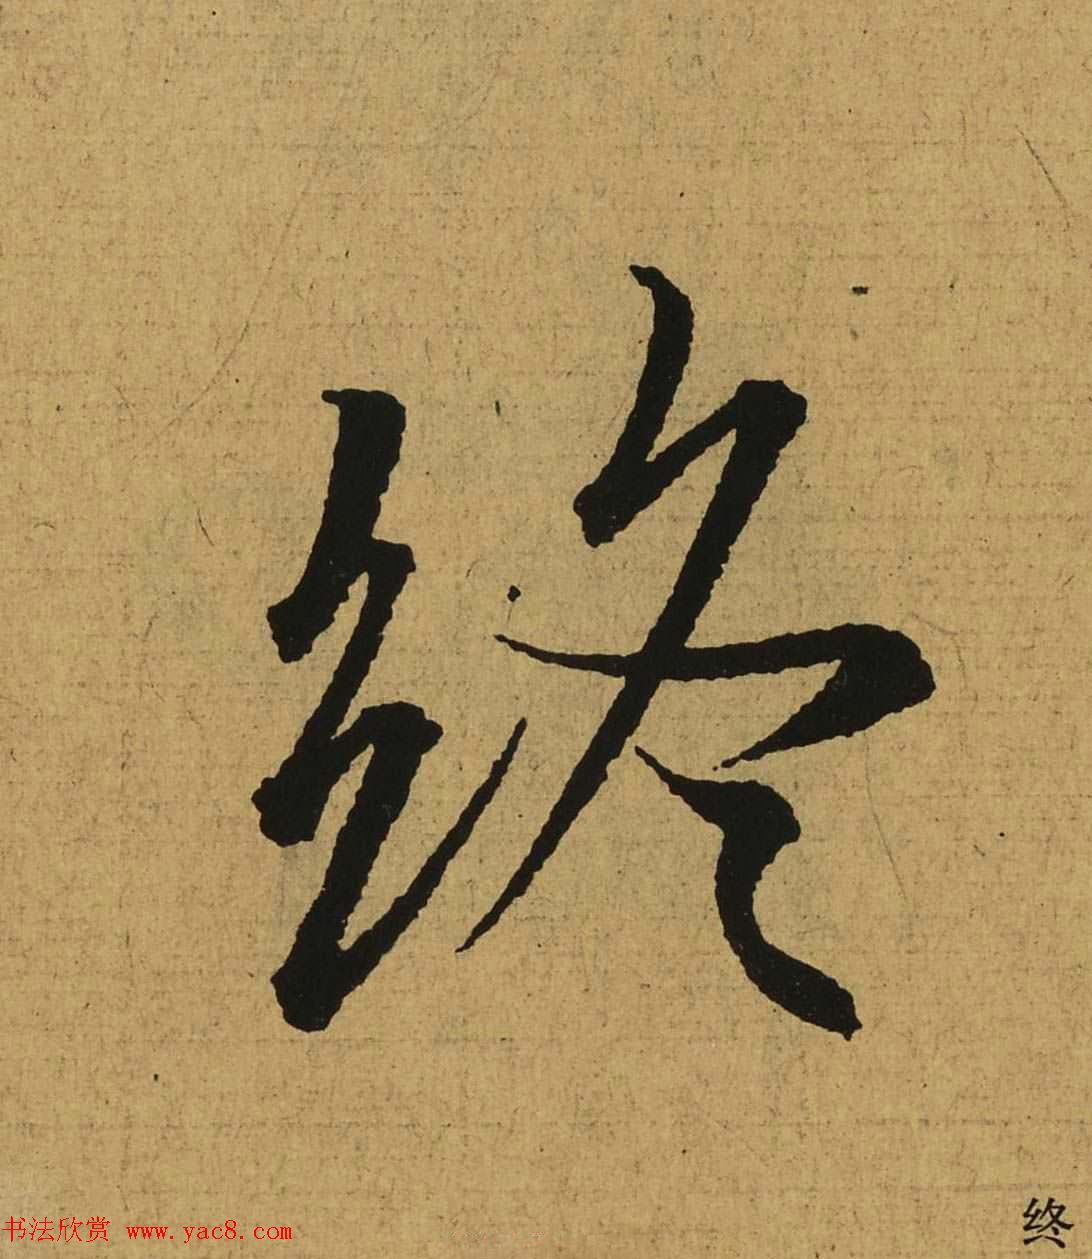 终
书法欣赏 www.yac8.com
终